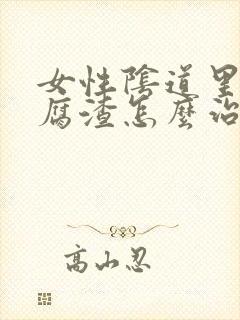 女性陰道里
腐渣怎麼治
高山忍